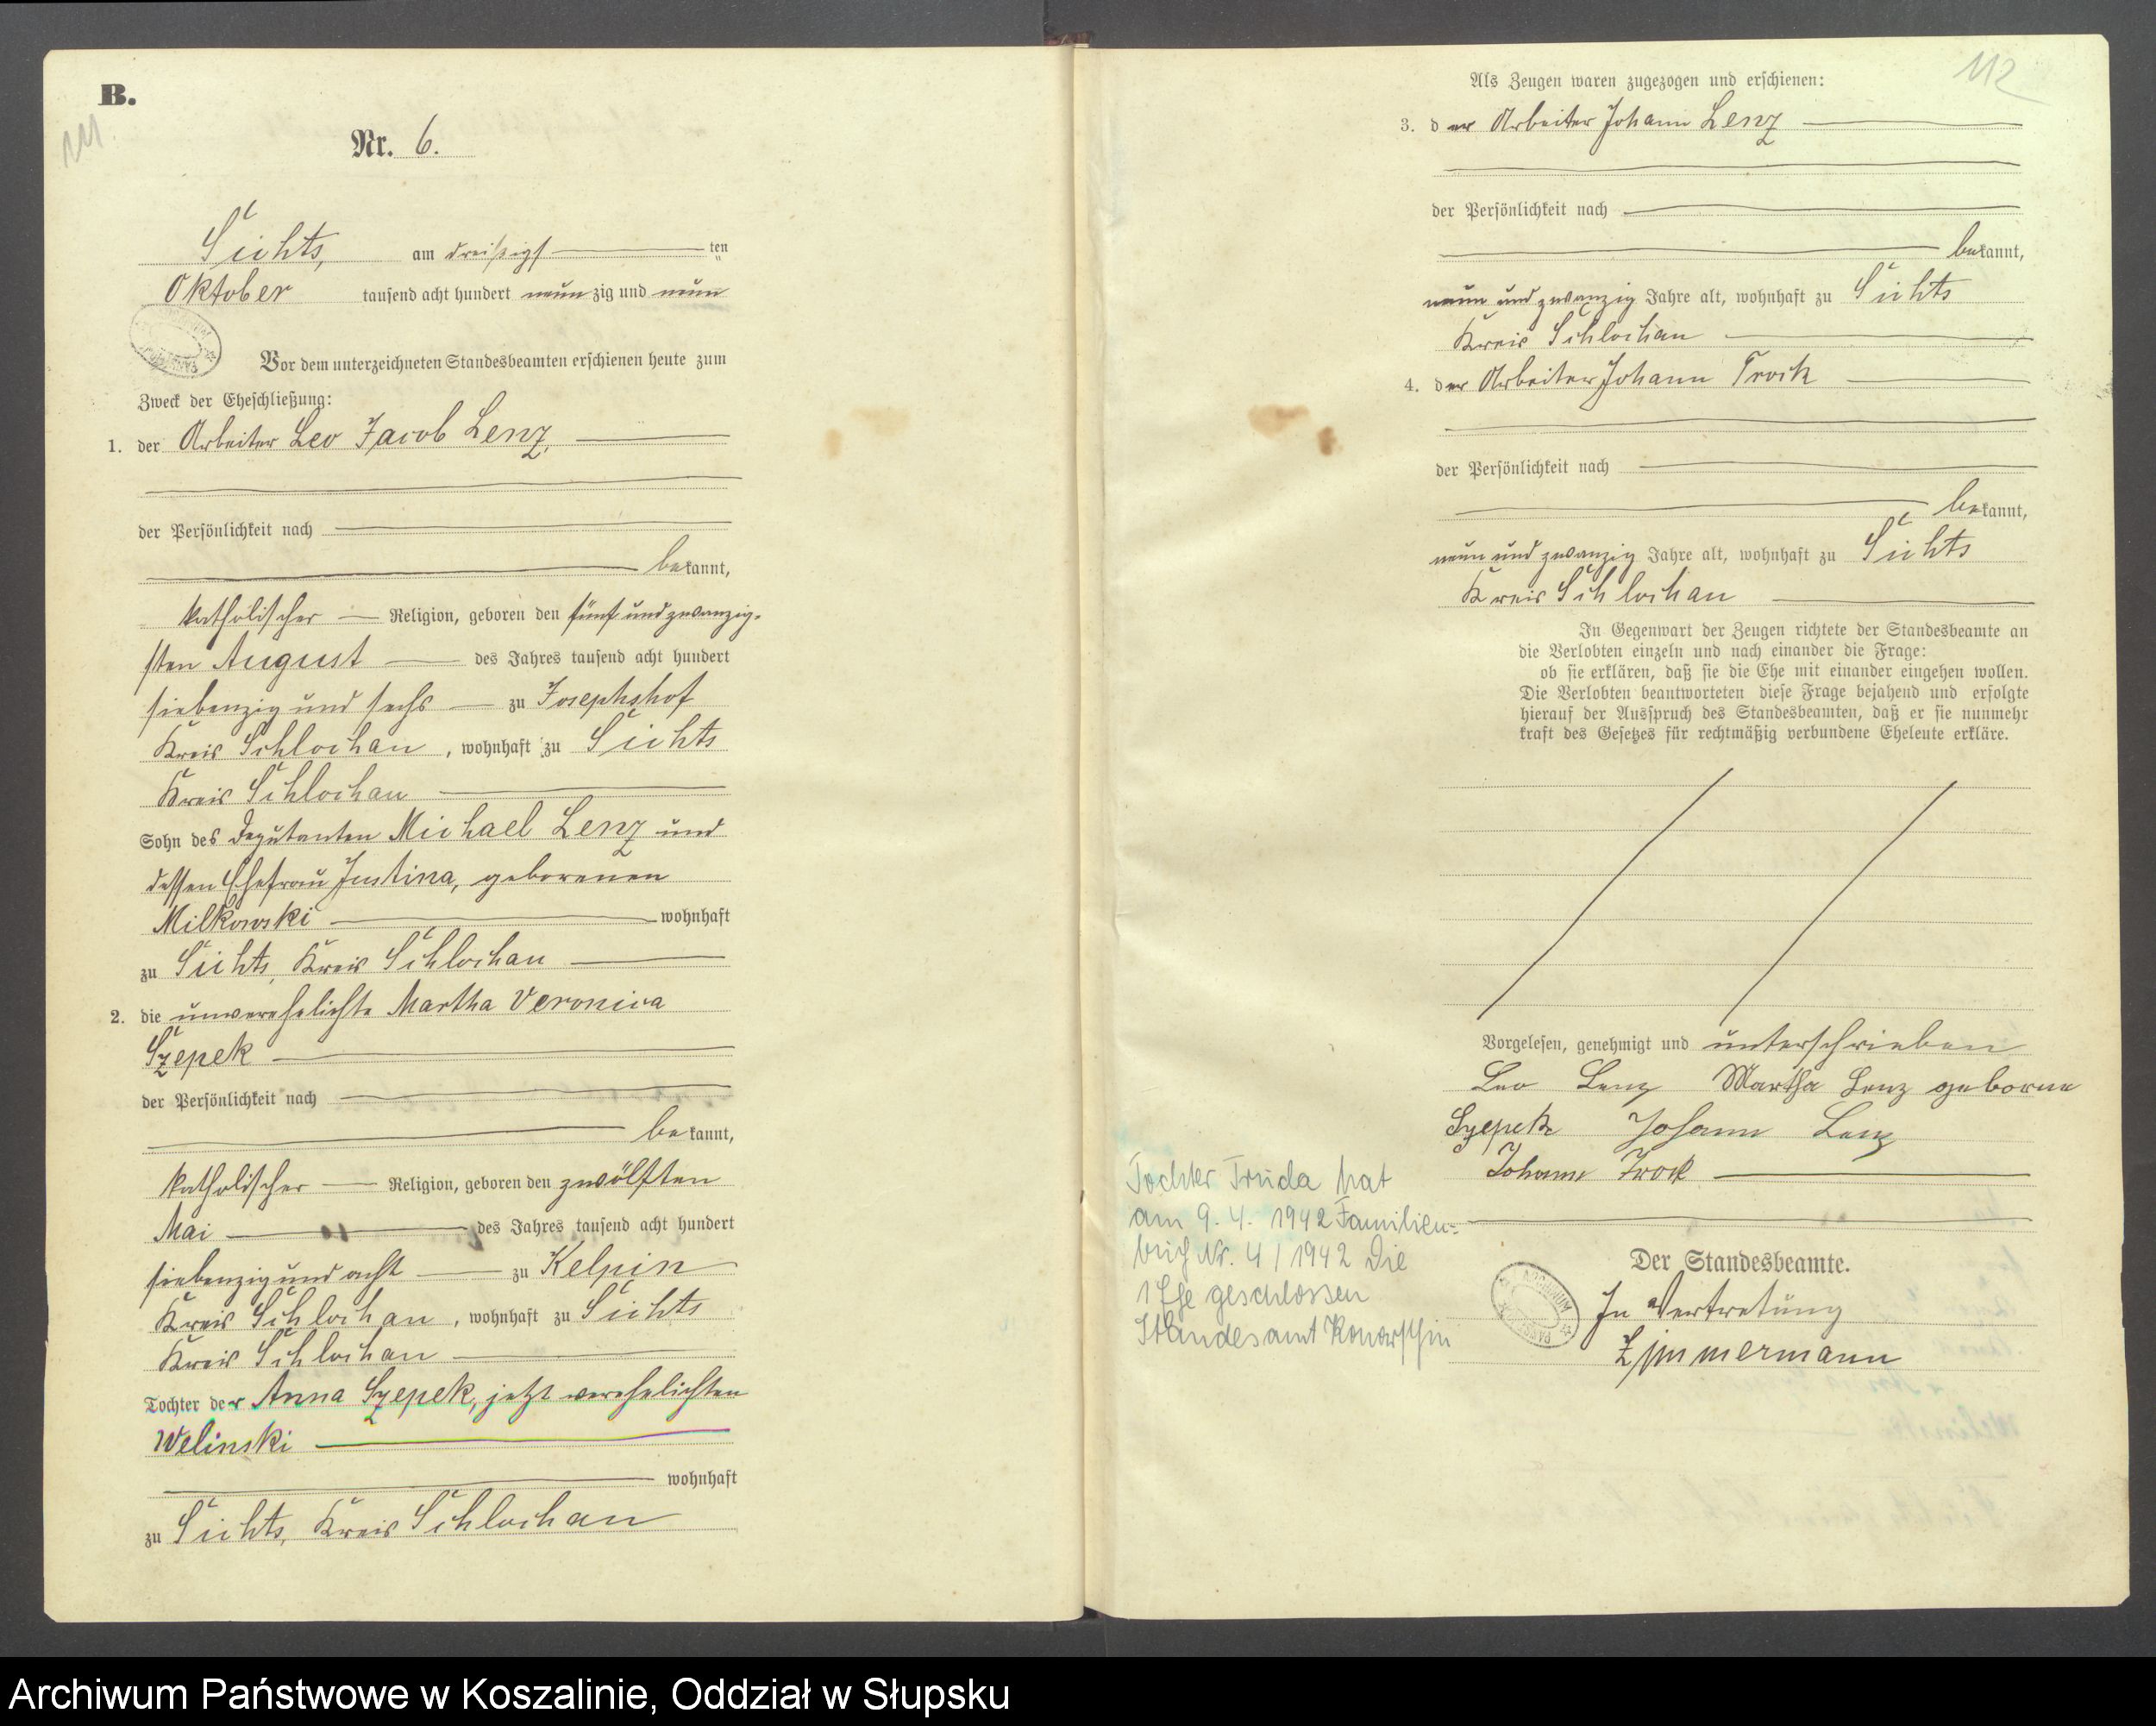 B.
111
Nr. 6.
Sichts, am dreißigs ten
Oktober tausend acht hundert neunzig und neun
Vor dem unterzeichneten Standesbeamten erschienen heute zum
Zweck der Eheschließung:
1. der Arbeiter Leo Jacob Lenz,
der Persönlichkeit nach
bekannt,
katholischer Religion, geboren den fünf und zwanzig-
sten August des Jahres tausend acht hundert
siebenzig und sechs zu Josephshof
Kreis Schlochau, wohnhaft zu Sichts
Kreis Schlochau
Sohn des Deputanten Michael Lenz und
dessen Ehefrau Justina, geborenen
Milkowski wohnhaft
zu Sichts, Kreis Schlochau
2. die unverehelichte Martha Veronica
Szepek
der Persönlichkeit nach
bekannt,
katholischer Religion, geboren den zwölften
Mai des Jahres tausend acht hundert
siebenzig und acht zu Kelpin
Kreis Schlochau, wohnhaft zu Sichts
Kreis Schlochau
Tochter der Anna Szepek, jetzt verehelichten
Welinski
wohnhaft
zu Sichts, Kreis Schlochau
112
Als Zeugen waren zugezogen und erschienen:
3. der Arbeiter Johann Lenz
der Persönlichkeit nach
bekannt,
neun und zwanzig Jahre alt, wohnhaft zu Sichts
Kreis Schlochau
4. der Arbeiter Johann Trock
der Persönlichkeit nach
bekannt,
neun und zwanzig Jahre alt, wohnhaft zu Sichts
Kreis Schlochau
In Gegenwart der Zeugen richtete der Standesbeamte an
die Verlobten einzeln und nach einander die Frage:
ob sie erklären, daß sie die Ehe mit einander eingehen wollen.
Die Verlobten beantworteten diese Frage bejahend und erfolgte
hierauf der Ausspruch des Standesbeamten, daß er sie nunmehr
kraft des Gesetzes für rechtmäßig verbundene Eheleute erkläre.
Vorgelesen, genehmigt und unterschrieben
Leo Lenz Martha Lenz geborne
Szepek Johann Lenz
Johann Trock
Der Standesbeamte.
In Vertretung
Zimmermann
Tochter Truda hat
am 9. 4. 1942 Familien-
buch Nr. 4/1942 Die
1 Ehe geschlossen
Standesamt
Archiwum Państwowe w Koszalinie, Oddział w Słupsku